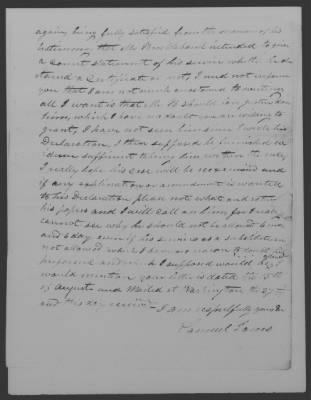 again, being fully satisfied from the manner of his
testimony that Mr intended to give
a correct statement of his service whether he ob-
tained a Certificate or not, I need not inform
you that I am not much accustomed to writing
all I want is that Mr should have justice done
him, which I have no doubt you are willing to
grant, I have not seen him since I wrote his
Declaration, I then supposed he furnished evi-
dence sufficient taking him within the rule,
I really hope his case will be reexamined and
if any explanation or amendment is wanted
to his Declaration please note what and return
his papers and I will call on him for I really
cannot see why he should not be allowed 6 mo
and 6 day even if his service as a substitute is
not allowed which I have no reason to doubt he
performed and which I supposed would be allowed
would mention your letter is dated the 5th
of August and Mailed at Washington the 27th
and this day received — I am respectfully yours &c
Samuel